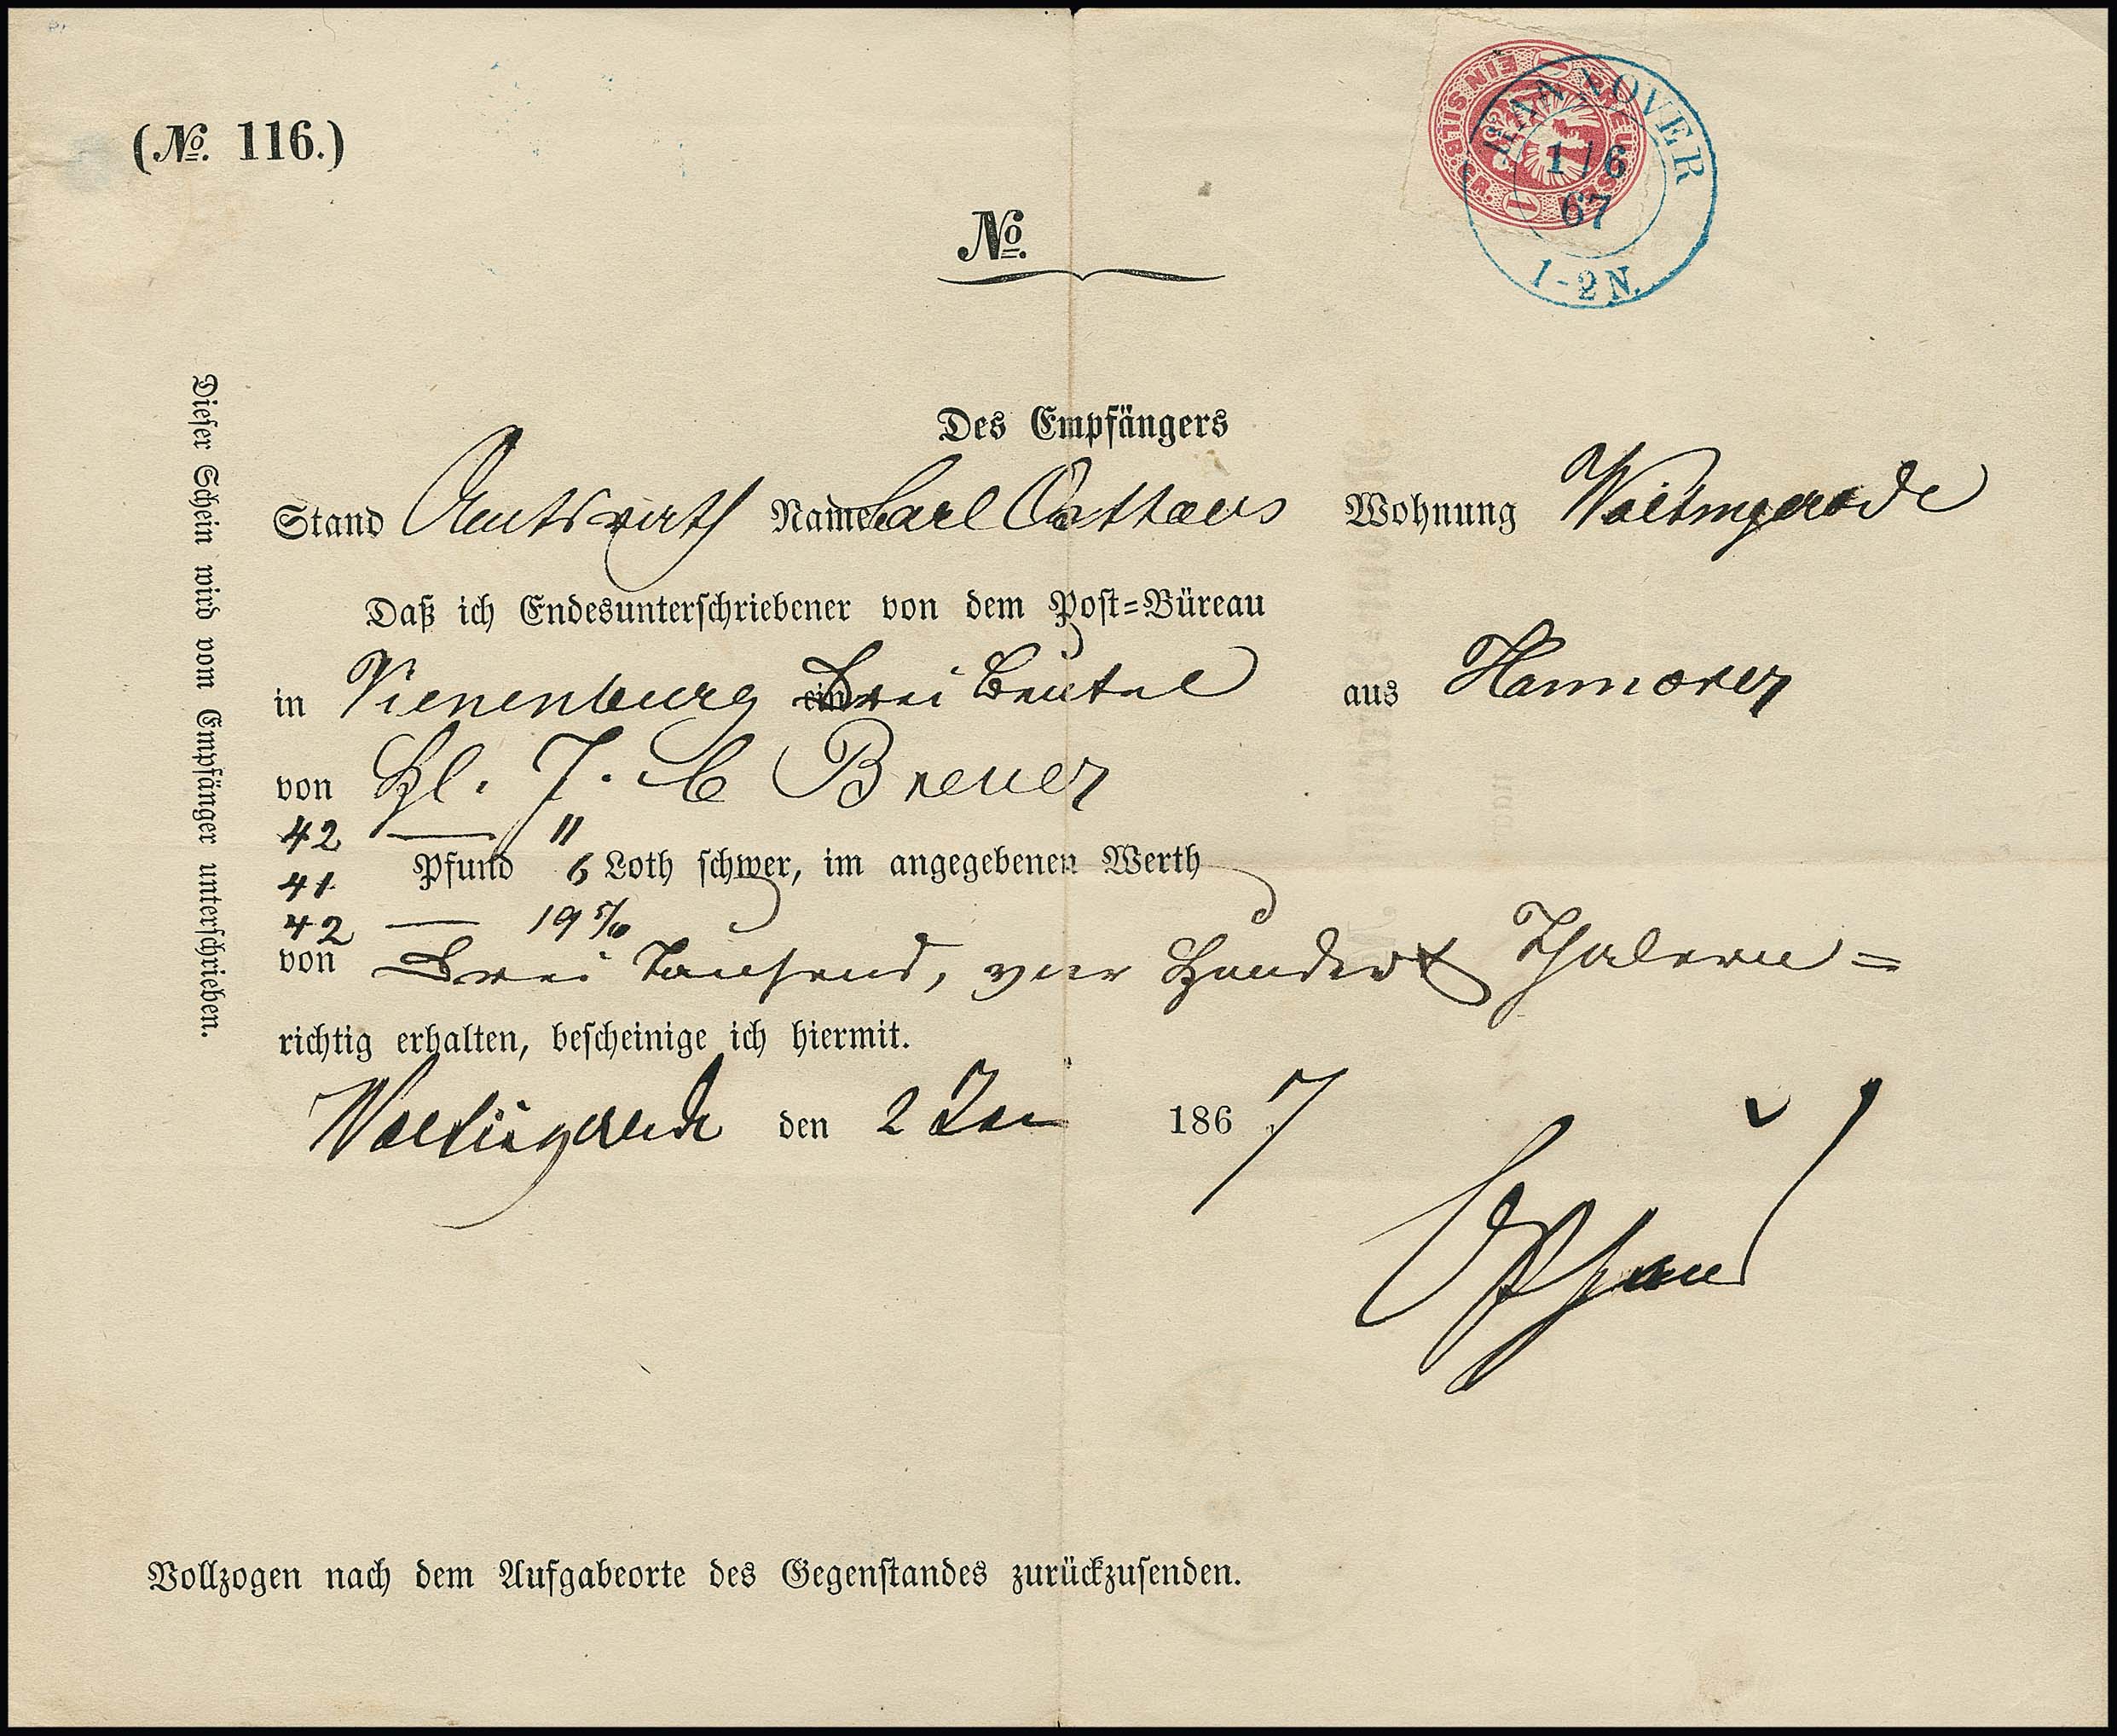 (No. 116.)
1 EIN SILB. GR. 1 PREUSSEN
HANNOVER
1/6
67
1-2N.
No.
Des Empfängers
Stand Amtsrath Name Carl Wohnung Wöltingerode
Daß ich Endesunterschriebener von dem Post=Büreau
in Vienenburg ein Drei Beutel aus Hannover
von J. C Breuer
42 — "
41 Pfund 6 Loth schwer, im angegebenen Werth
42 — 19 5/10
von Drei Tausend, vier Hundert Thalern =
richtig erhalten, bescheinige ich hiermit.
Wöltingerode den 2 Jun 1867
Dieser Schein wird vom Empfänger unterschrieben.
Vollzogen nach dem Aufgabeorte des Gegenstandes zurückzusenden.